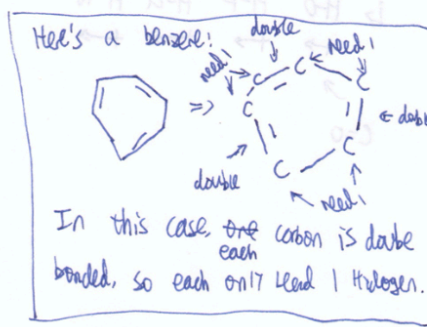 Here's a benzene!
double
need 1
need 1
C C C
C
C C
double
double
need 1
=>
In this case, one each carbon is double
bonded, so each only need 1 Hydrogen.